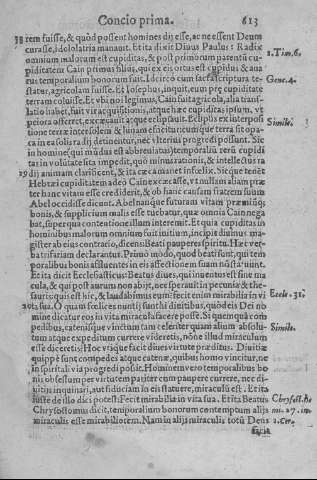 Concio prima. 613
38 rem fuisse, & quòd possent homines dij esse, ac ne essent Deum
curasse, idololatria manauit. Et ita dixit Diuus Paulus: Radix
omnium malorum est cupiditas, & post primorum parentũ cu- 1. Tim. 6.
piditatem Cain primus filius, qui ex eis ortus est cupidus & aua
rus temporalium bonorum fuit. Id circo cum sacra scriptura te- Gene. 4.
statur, agricolam fuisse. Et Iosephus, inquit, eum præ cupiditate
terram coluisse. Et vbi nos legimus, Cain fuit agricola, alia trans
latio habet, fuit vir acquisitionis, atque hæc cupiditas ipsum, vt
peiora osteret, excæcauit atque eclipsauit. Eclipsis ex interposi
tione terræ inter solem & lunam efficitur cumque terra sit opa- Simile.
ca in ea solaris dij detinentur, nec vlterius progredi possunt. Sic
in homine (qui mũdus est abbreuiatus) temporaliũ rerũ cupidi
tas in voluntate sita impedit, quò minus rationis, & intellectus ra
29 dij animam clarificent, & ita cæca manet infœlix. Sic que tenet
Hebtæi cupiditatem adeò Cain excæcasse, vt nullam aliam præ
ter hanc vitam esse crediderit, & ob hanc causam fratrem suum
Abel occidisse dicunt. Abel nanque futuram vitam præmiũq;
bonis, & supplicium malis esse tuebatur, quæ omnia Cain nega
bat, super qua contentione illum interemit. Et quia cupiditas in
hominibus malorum omnium fuit initium, incipit diuinus ma-
gister ab eius contrario, dicens: Beati pauperes spiritu. Hæc ver-
ba trifariam declarantur. Primo modo, quod beati sunt, qui tem
poralibus bonis affluentes in eis affectionem suam nõ statuũt.
Et ita dicit Ecclesiasticus: Beatus diues, qui inuentus est sine ma
cula, & qui post aurum non abijt, nec sperauit in pecunia & the-
sauris: quis est hic, & laudabimus eum: fecit enim mirabilia in vi Eccle. 31.
ta sua. O quam fœlices nuntij sunt hi diuitibus, quòd eis Dei no
mine dicatur eos in vita miracula facere posse. Si quem quã com
pedibus, catenisque vinctum tam celeriter quàm alium absolu- Simile.
tum atque expeditum currere videretis, nõne illud miraculum
esse diceretis? Hoc vtique facit diues virtute præditus. Diuitiæ
quippè sunt compedes atque catenæ, quibus homo vincitur, ne
in spirituali via progredi possit. Hominem vero temporalibus bo
nis obsessum per virtutem pariter cum paupere currere, nec di-
uitijs inquinari, aut fiduciam in eis statuere, miraculũ est. Et ita
iuste de illo dici potest: Fecit mirabilia in vita sua. Et ita Beatus Chrysost. ho
Chrysostomus dicit, temporalium bonorum contemptum alijs mi. 27. in.
miraculis esse mirabiliorem. Nam in alijs miraculis totũ Deus 2. Cor.